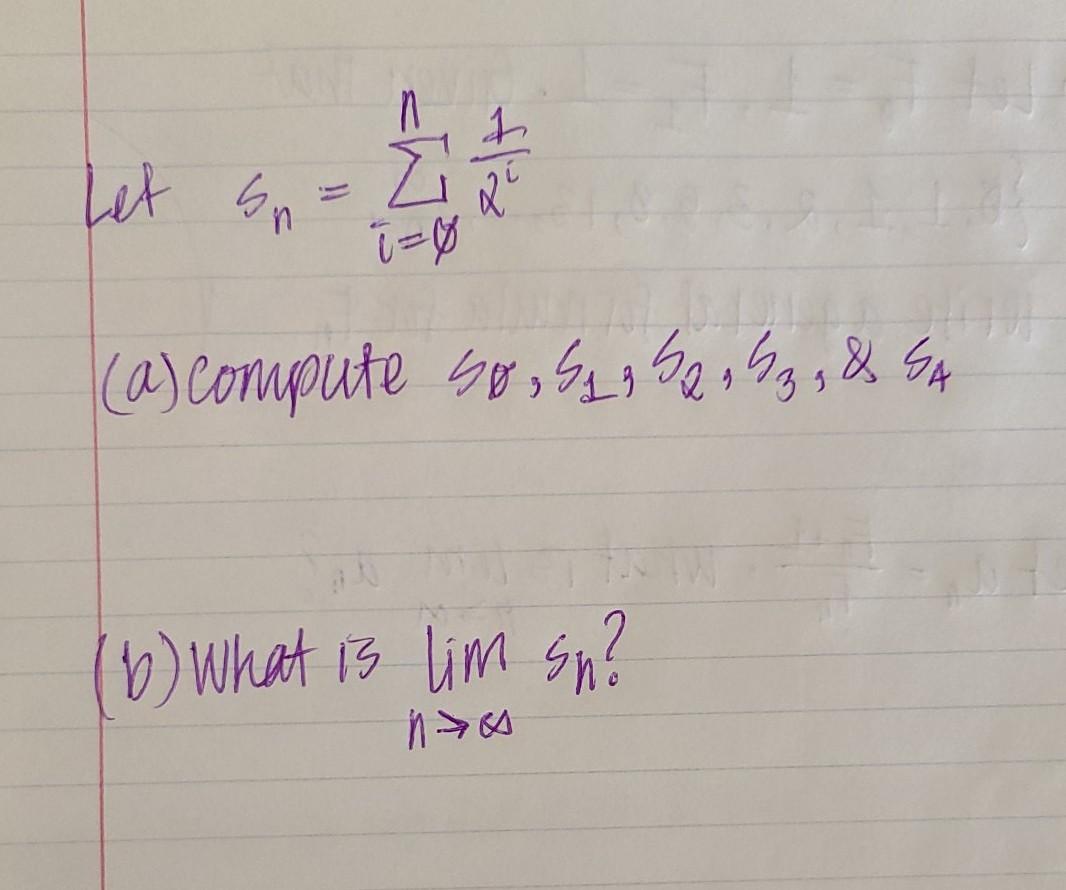 Let Sₙ = ∑ⁿᵢ₌₀ 1/2ⁱ
(a) compute S₀, S₁, S₂, S₃, & S₄
(b) What is lim Sₙ?
n→∞